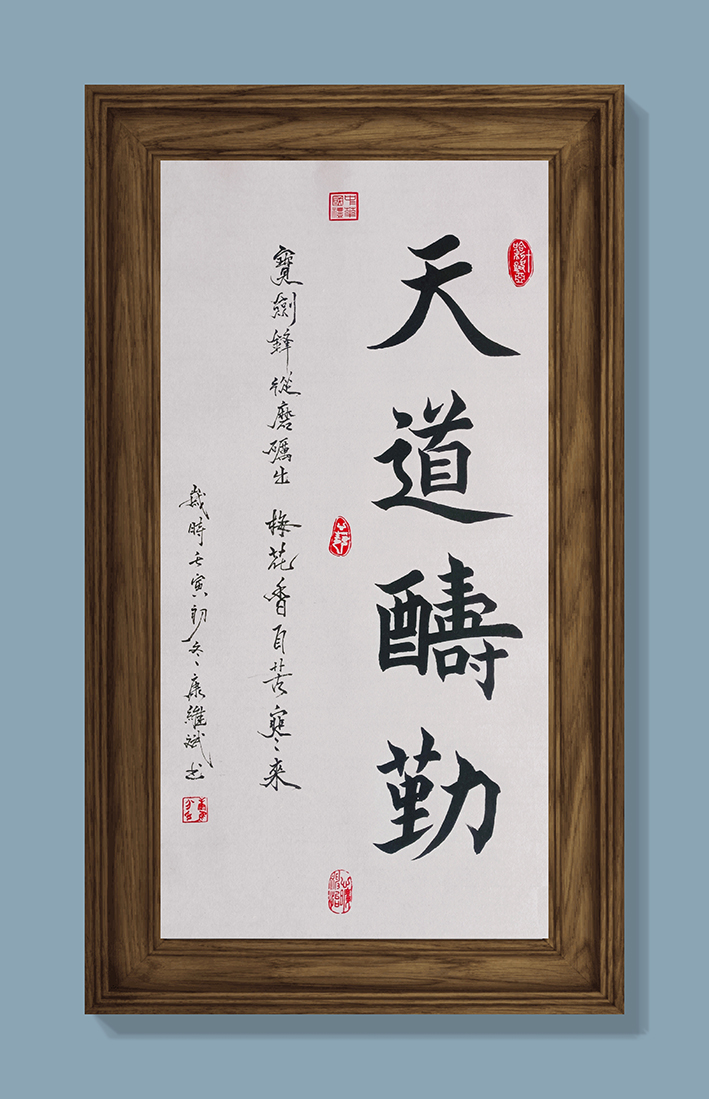 天道酬勤
寶劍鋒從磨礪出 梅花香自苦寒來
歲時壬寅初冬康維斌书